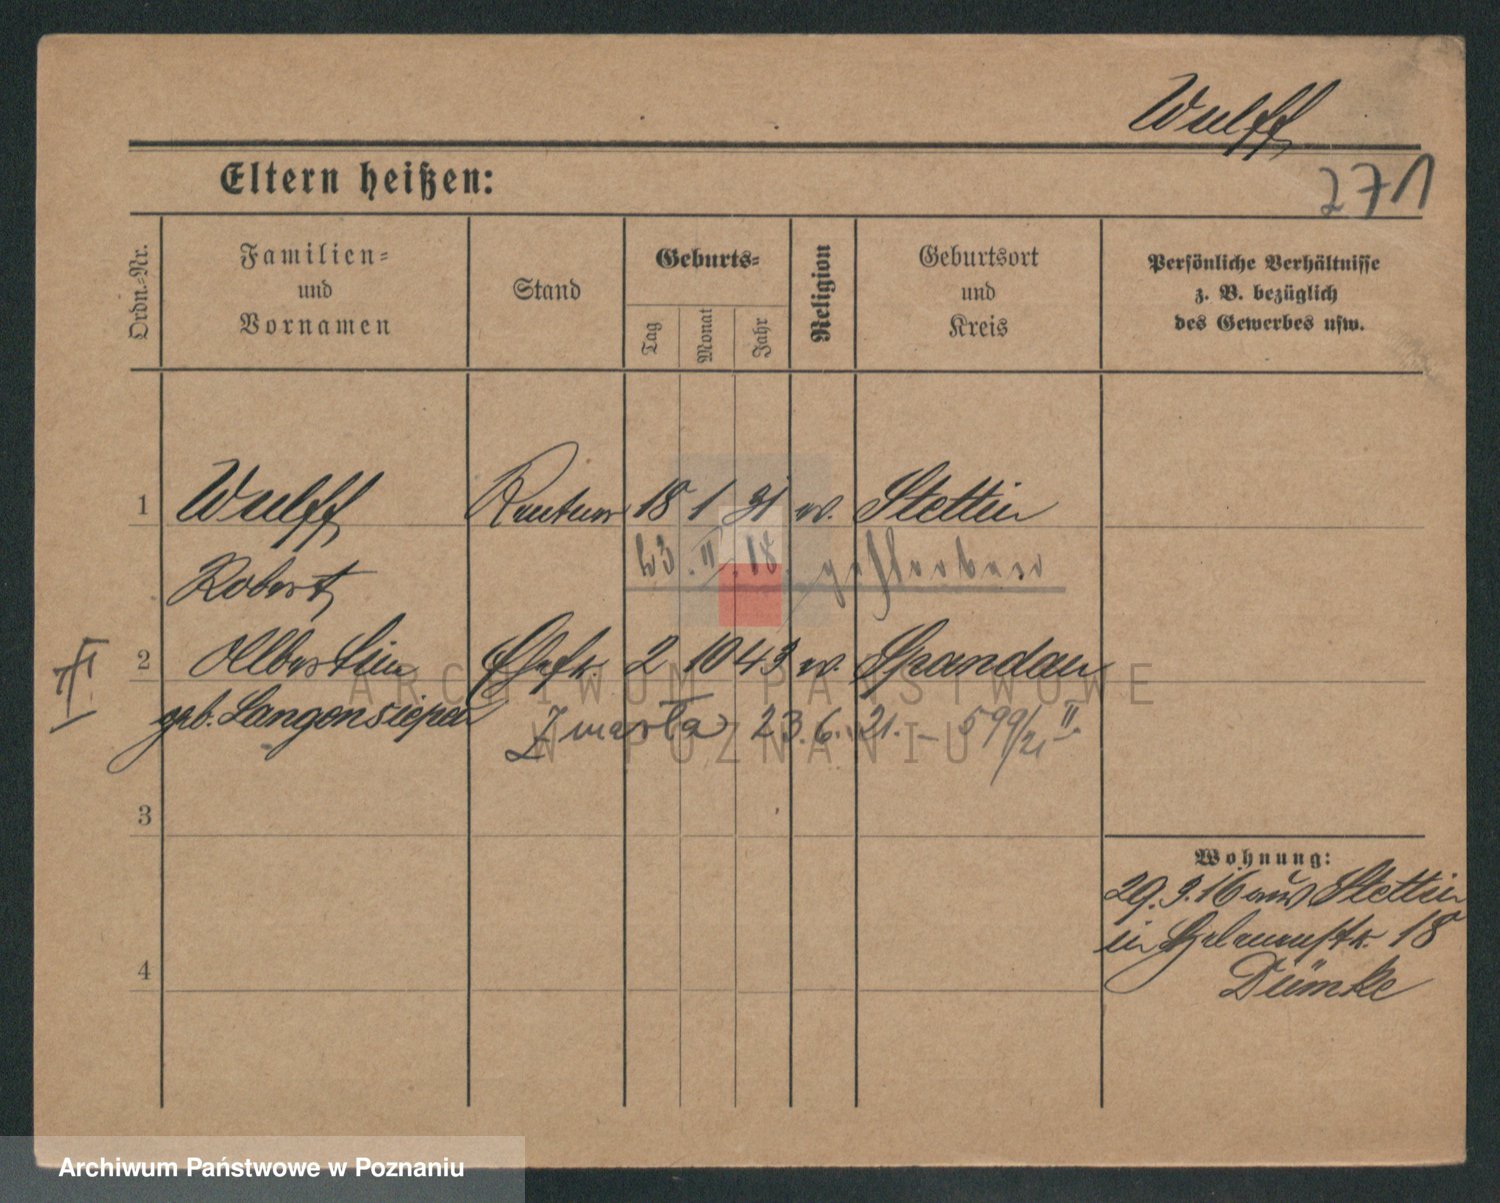 Wulff
271
Eltern heißen:
Ordn.-Nr.
Familien-
und
Vornamen
Stand
Geburts-
Tag
Monat
Jahr
Religion
Geburtsort
und
Kreis
Persönliche Verhältnisse
z. B. bezüglich
des Gewerbes usw.
1 Wulff Rentner 18 1 31 ev. Stettin
23. II. 18. gestorben
Robert
II
2 Albertine Ehefr. 2 10 43 ev. Spandau
geb. Langensiepen
Zmarła 23.6.21. – 599/21 II.
3
4
Wohnung:
29.3.16 aus Stettin
in 18
Dümke
ARCHIWUM PAŃSTWOWE
W POZNANIU
Archiwum Państwowe w Poznaniu